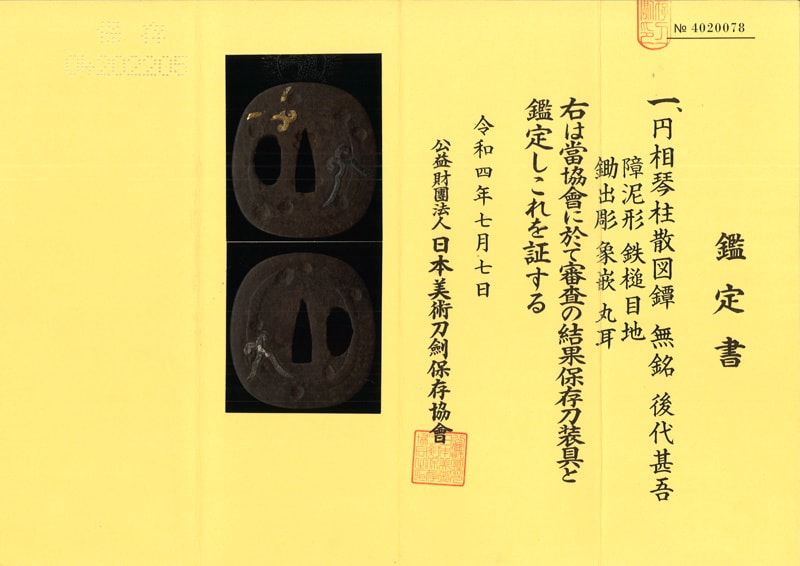 № 4020078
鑑定書
一、円相琴柱散図鐔 無銘 後代甚吾
障泥形 鉄槌目地
鋤出彫 象嵌 丸耳
右は當協會に於て審査の結果保存刀装具と
鑑定しこれを証する
令和四年七月七日
公益財團法人 日本美術刀劍保存協會
保存